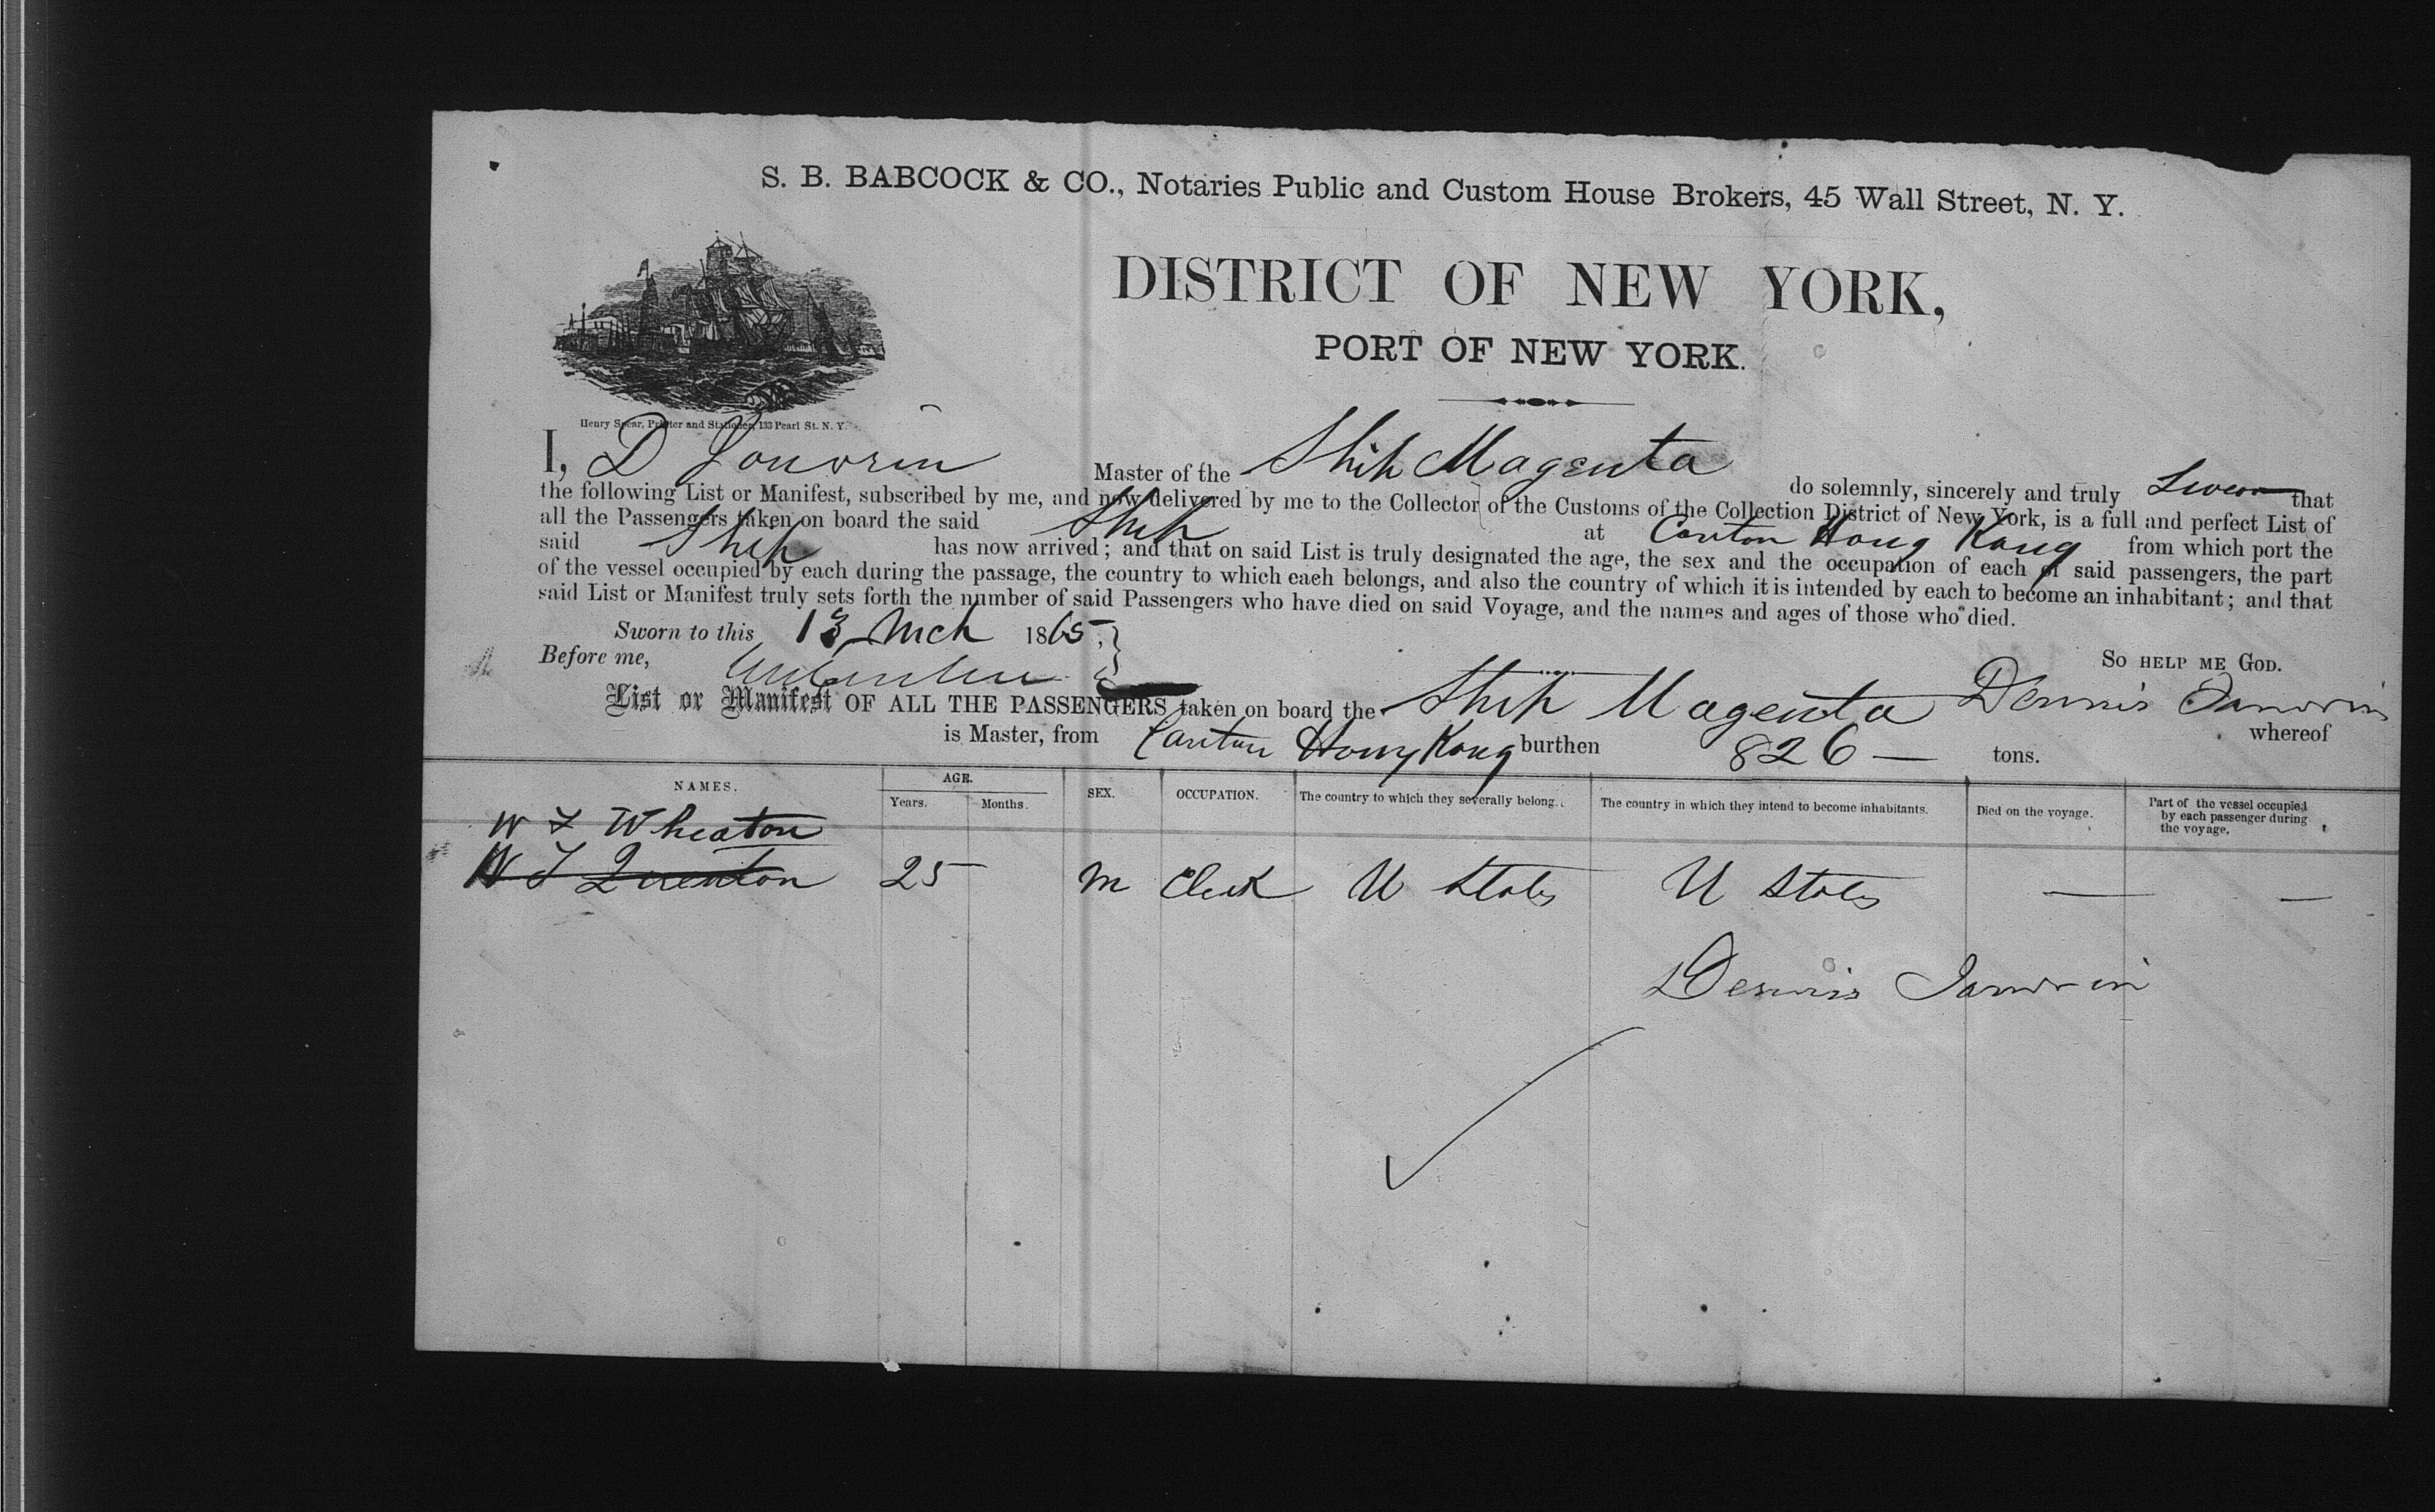 S. B. BABCOCK & CO., Notaries Public and Custom House Brokers, 45 Wall Street, N. Y.
DISTRICT OF NEW YORK,
PORT OF NEW YORK.
Henry Spear, Printer and Stationer, 133 Pearl St. N. Y.
I, D Janvrin Master of the Ship Magenta do solemnly, sincerely and truly Swear that
the following List or Manifest, subscribed by me, and now delivered by me to the Collector of the Customs of the Collection District of New York, is a full and perfect List of
all the Passengers taken on board the said Ship at Canton Hong Kong from which port the
said Ship has now arrived; and that on said List is truly designated the age, the sex and the occupation of each of said passengers, the part
of the vessel occupied by each during the passage, the country to which each belongs, and also the country of which it is intended by each to become an inhabitant; and that
said List or Manifest truly sets forth the number of said Passengers who have died on said Voyage, and the names and ages of those who died.
Sworn to this 13 Mch 1865.
So HELP ME GOD.
Before me,
Dennis Janvrin
List or Manifest OF ALL THE PASSENGERS taken on board the Ship Magenta whereof
is Master, from Canton Hong Kong burthen 826 — tons.
NAMES. AGE. SEX. OCCUPATION. The country to which they severally belong. The country in which they intend to become inhabitants. Died on the voyage. Part of the vessel occupied by each passenger during the voyage.
Years. Months.
W F Wheaton
25 M Clerk U States U States — —
Dennis Janvrin